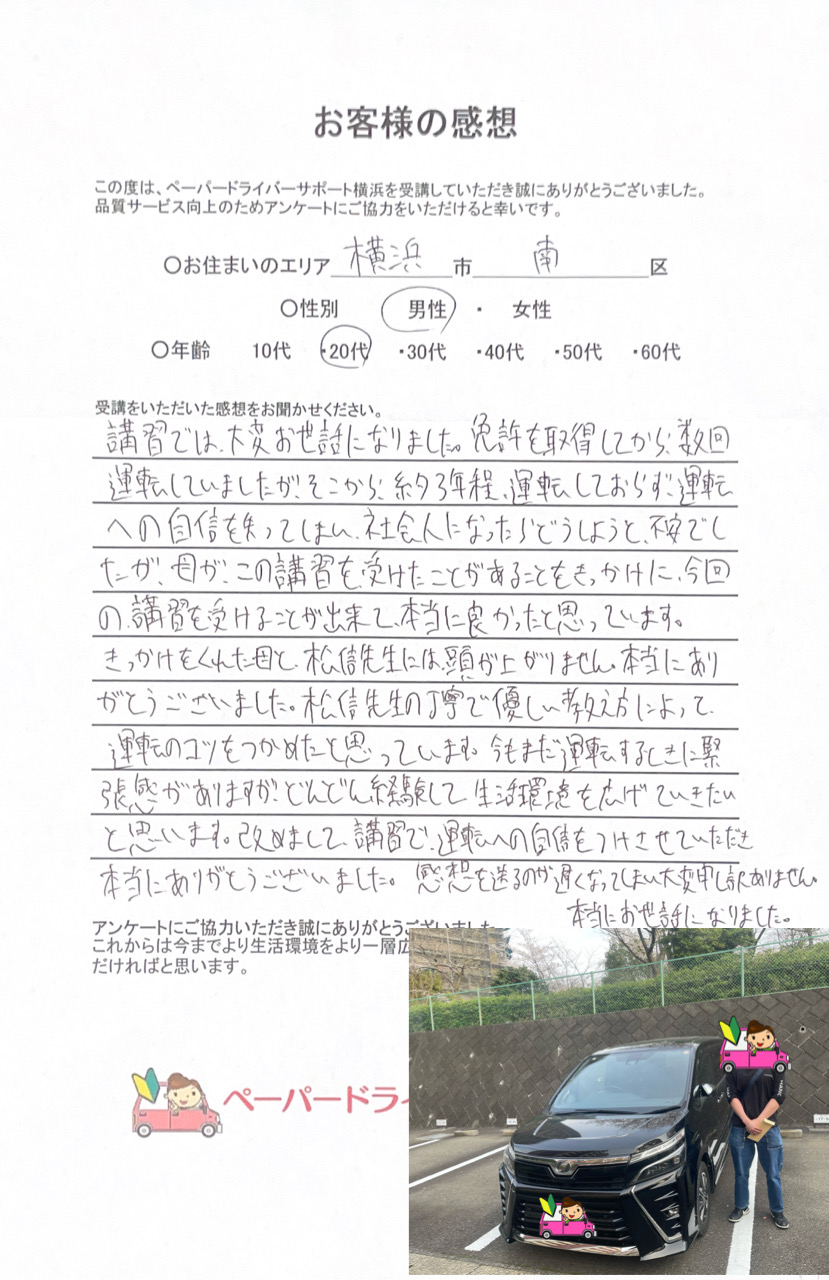 お客様の感想
この度は、ペーパードライバーサポート横浜を受講していただき誠にありがとうございました。
品質サービス向上のためアンケートにご協力をいただけると幸いです。
〇お住まいのエリア 横浜 市 南 区
〇性別 男性 ・ 女性
〇年齢 10代 ・20代 ・30代 ・40代 ・50代 ・60代
受講をいただいた感想をお聞かせください。
講習では、大変お世話になりました。免許を取得してから、数回
運転していましたが、そこから、約3年程、運転しておらず、運転
への自信を失ってしまい、社会人になったらどうしようと、不安でし
たが、母が、この講習を受けたことがあることをきっかけに、今回
の、講習を受けることが出来て、本当に良かったと思っています。
きっかけをくれた母と、松信先生には、頭が上がりません。本当にあり
がとうございました。松信先生の丁寧で優しい教え方によって、
運転のコツをつかめたと思っています。今もまだ運転するときに緊
張感がありますが、どんどん経験して、生活環境を広げていきたい
と思います。改めまして、講習で、運転への自信をつけさせていただき
本当にありがとうございました。感想を送るのが遅くなってしまい大変申し訳ありません。
本当にお世話になりました。
アンケートにご協力いただき誠にありがとうございました
これからは今までより生活環境をより一層広
だければと思います。
ペーパードライ